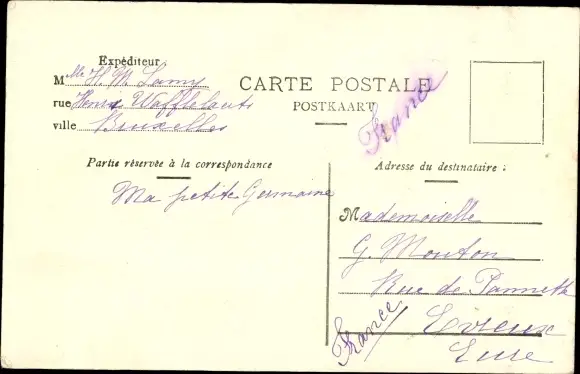 Expéditeur
Mlle H. M. Lamy
rue Henri Wafflelaerts
ville Bruxelles
CARTE POSTALE
POSTKAART
France
Partie réservée à la correspondance
Ma petite Germaine
Adresse du destinataire :
Mademoiselle
G. Mouton
Rue de Pannette
Evreux
Eure
France